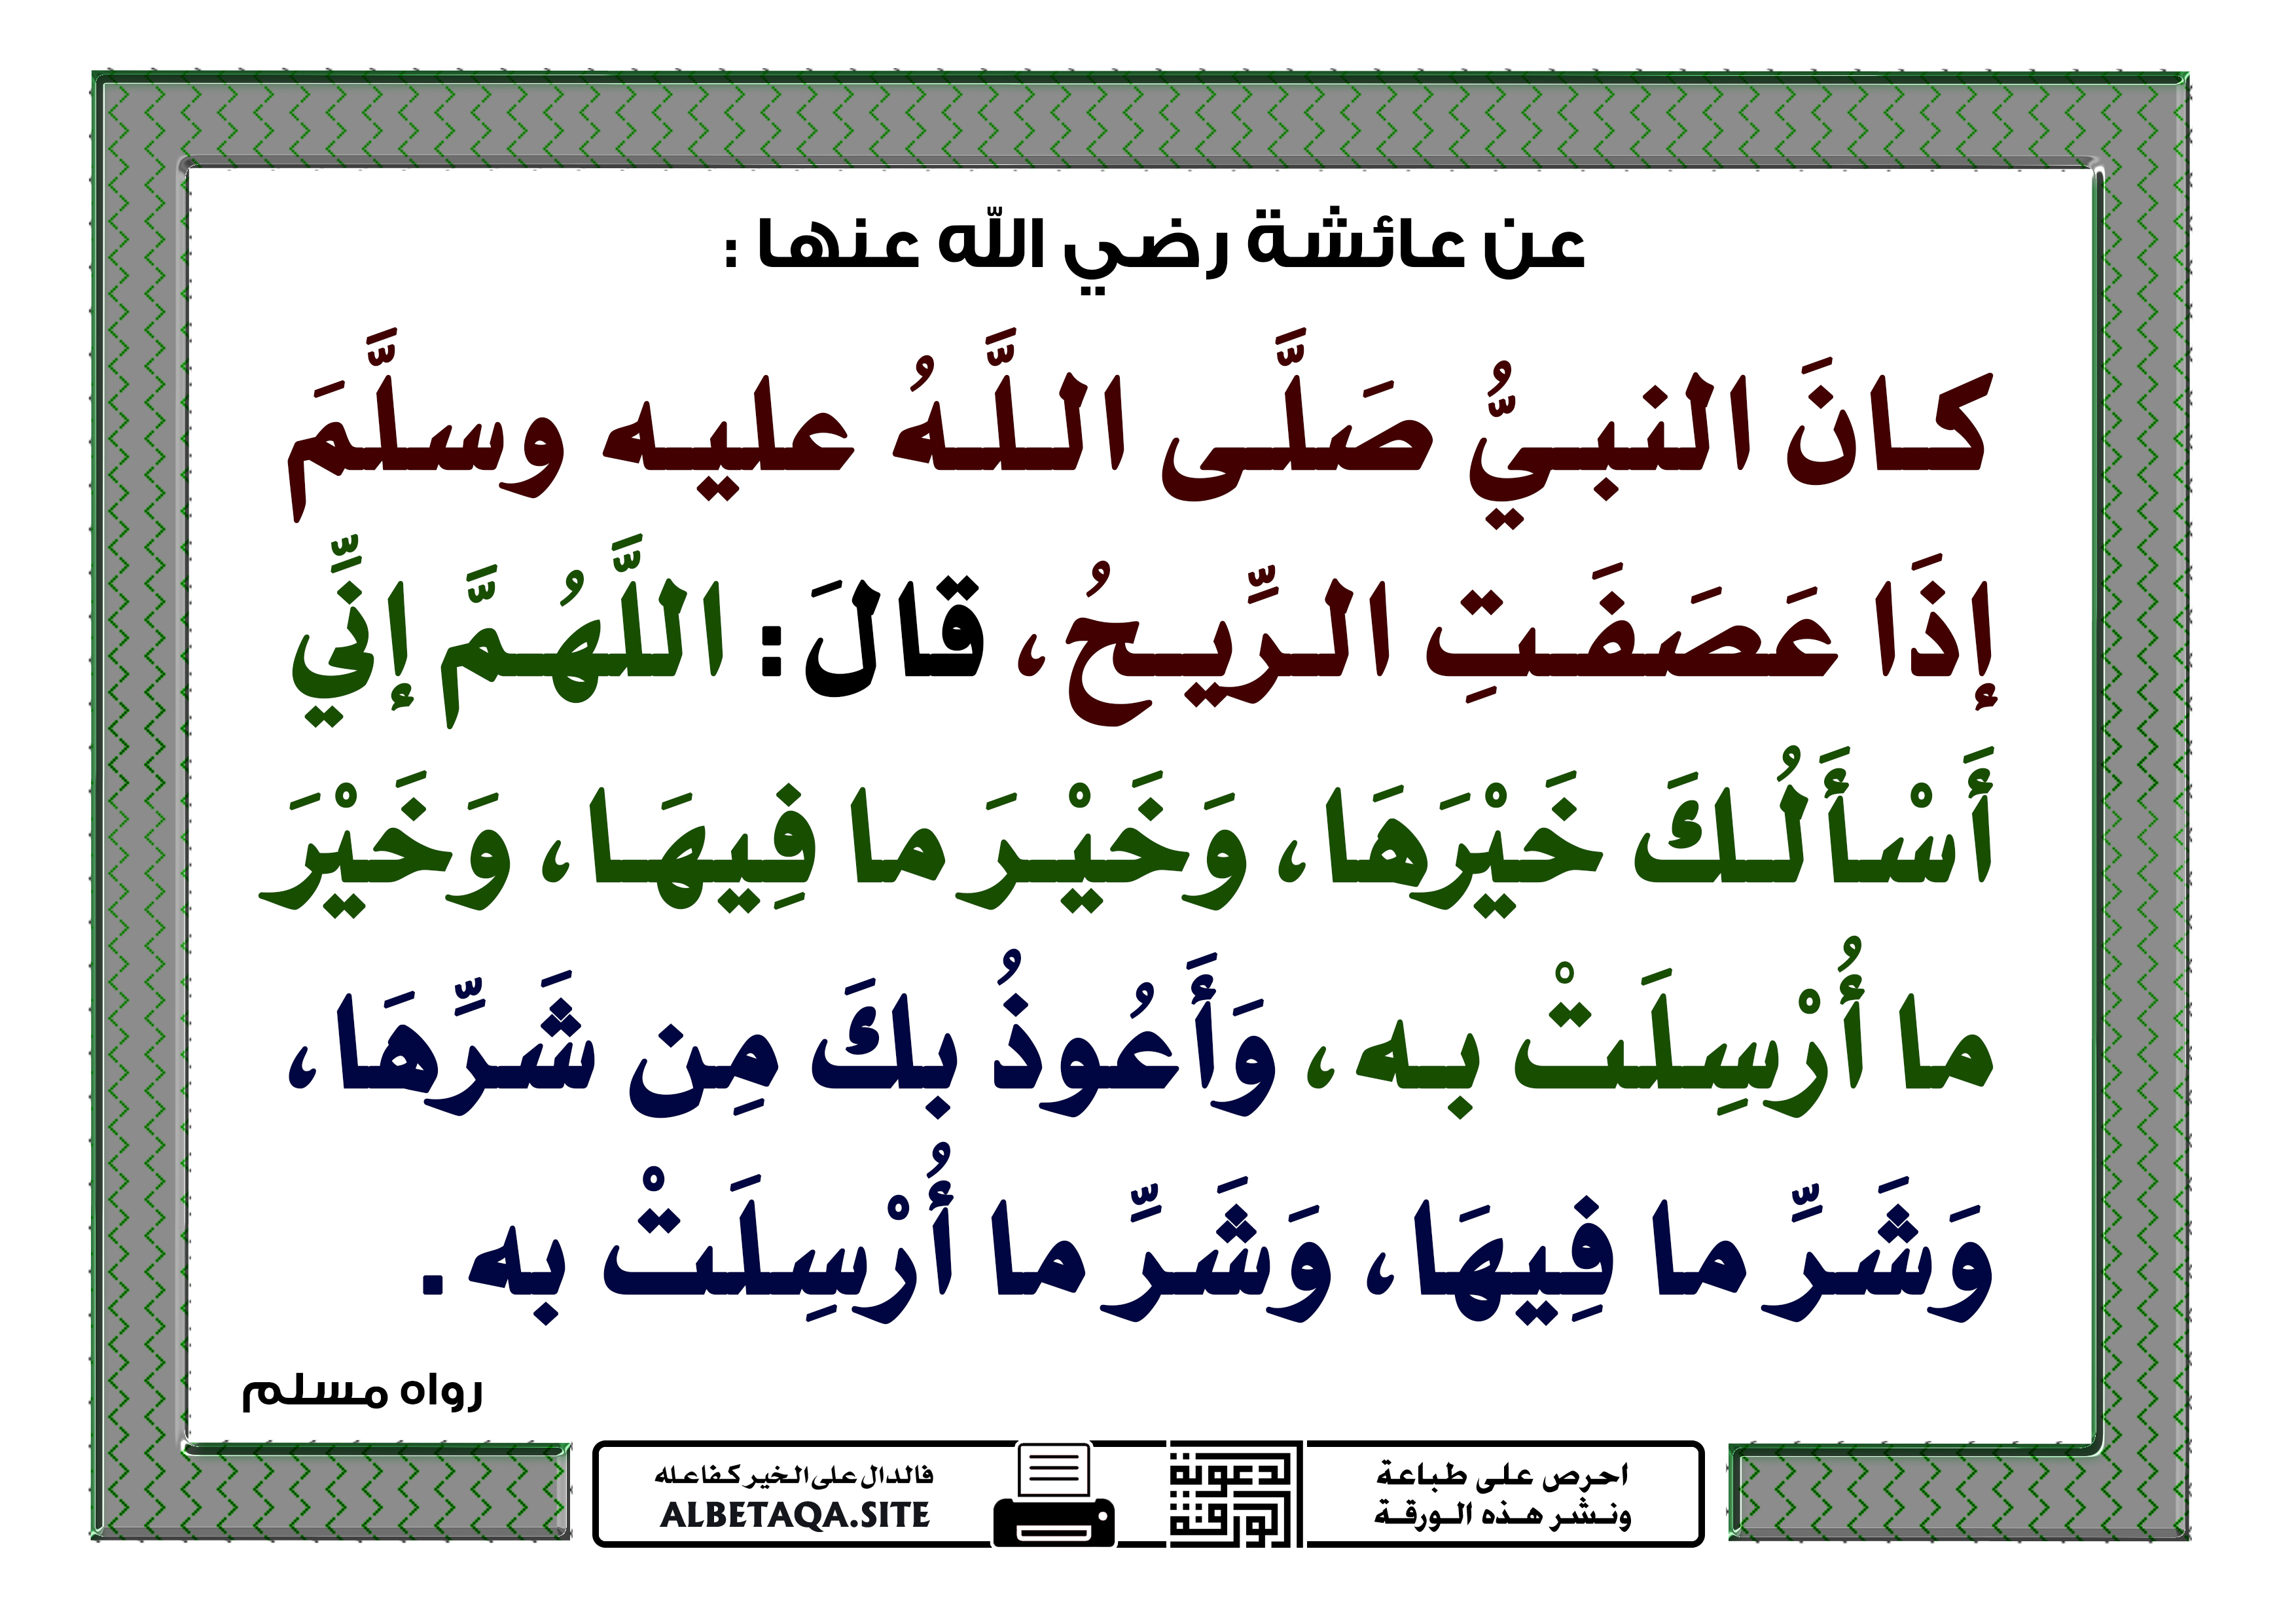 عن عائشة رضي الله عنها :
كانَ النبيُّ صَلَّى اللَّهُ عليه وسلَّمَ
إذَا عَصَفَتِ الرِّيحُ، قالَ: اللَّهُمَّ إنِّي
أَسْأَلُكَ خَيْرَهَا، وَخَيْرَ ما فِيهَا، وَخَيْرَ
ما أُرْسِلَتْ به، وَأَعُوذُ بكَ مِن شَرِّهَا،
وَشَرِّ ما فِيهَا، وَشَرِّ ما أُرْسِلَتْ به.
رواه مسلم
احرص على طباعة
ونشر هذه الورقة
الدعوية
الورقة
فالدال على الخير كفاعله
ALBETAQA.SITE